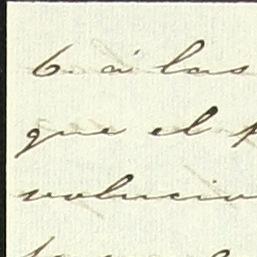 6. á las
que el
volucio